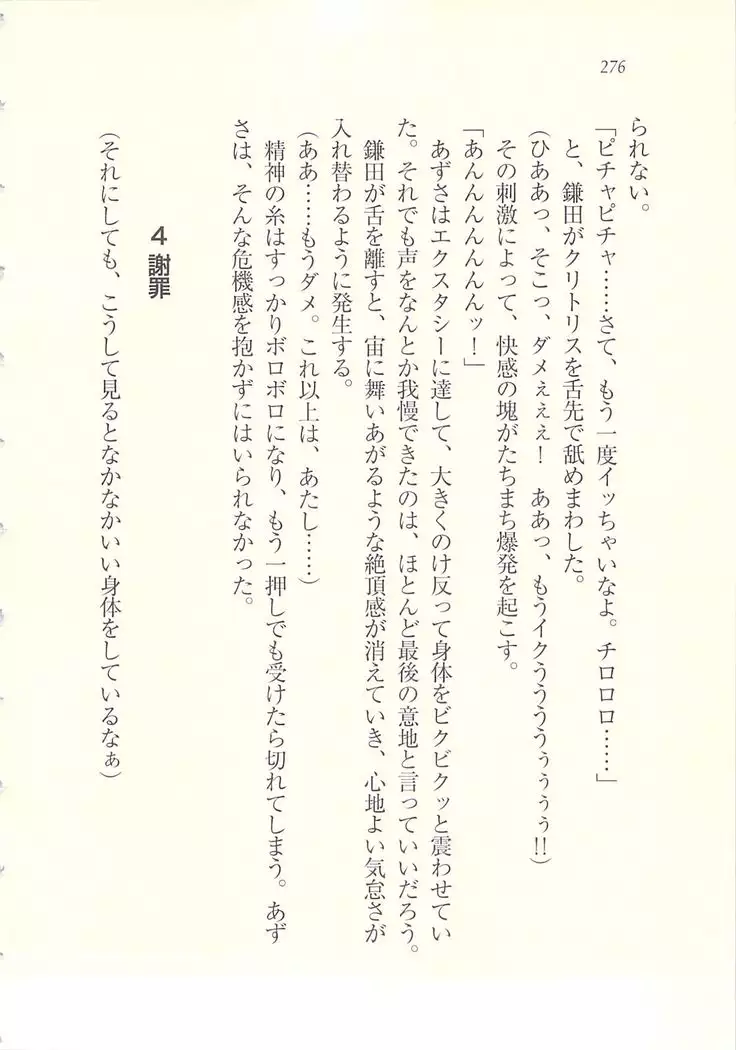 276
られない。
「ピチャピチャ……さて、もう一度イッちゃいなよ。チロロロ……」
と、鎌田がクリトリスを舌先で舐めまわした。
(ひああっ、そこっ、ダメぇぇぇ!　ああっ、もうイクうううぅぅぅぅ!!)
その刺激によって、快感の塊がたちまち爆発を起こす。
「あんんんんんんんッ!」
あずさはエクスタシーに達して、大きくのけ反って身体をビクビクッと震わせてい
た。それでも声をなんとか我慢できたのは、ほとんど最後の意地と言っていいだろう。
鎌田が舌を離すと、宙に舞いあがるような絶頂感が消えていき、心地よい気怠さが
入れ替わるように発生する。
(ああ……もうダメ。これ以上は、あたし……)
精神の糸はすっかりボロボロになり、もう一押しでも受けたら切れてしまう。あず
さは、そんな危機感を抱かずにはいられなかった。
4 謝罪
(それにしても、こうして見るとなかなかいい身体をしているなぁ)